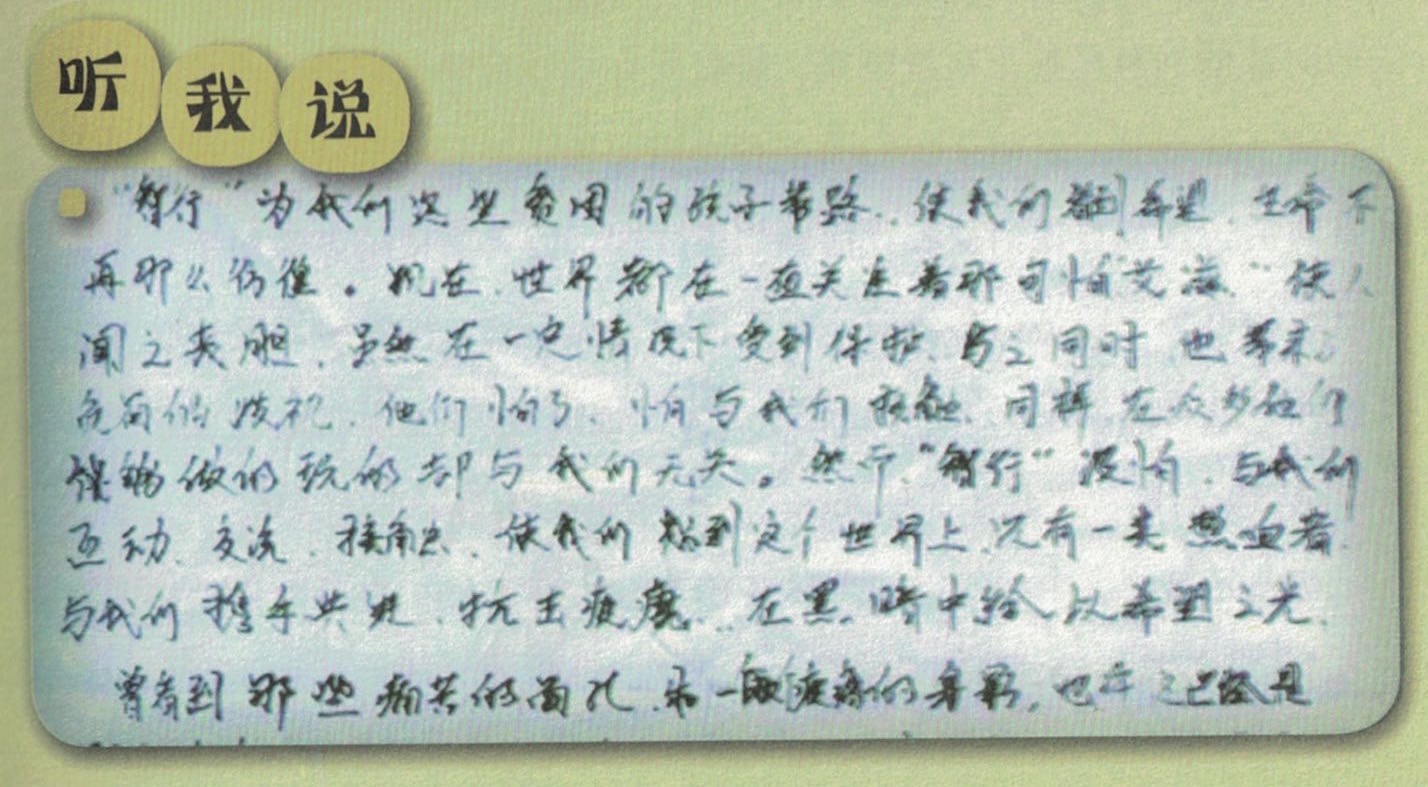 听我说
“智行”为我们这些贫困的孩子带路.使我们看到希望.生命不
再那么彷徨。现在.世界都在一直关注着那可怕“艾滋”使人
闻之丧胆.虽然在一定情况下受到保护.与之同时.也带来
负面的歧视.他们怕了.怕与我们接触.同样.在众多他们
能够做的玩的却与我们无关。然而.“智行”没怕.与我们
互动.交流.接触.使我们想到这个世界上.只有一类热血者.
与我们携手共进.抗击疲魔.在黑暗中给以希望之光.
曾看到那些痛苦的面孔.和一般疲劳的身影.也许已经是